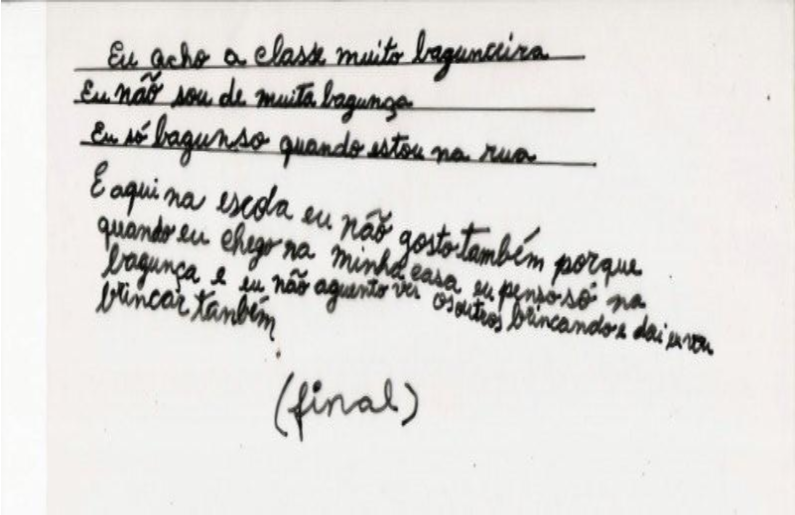 Eu acho a classe muito bagunceira
Eu não sou de muita bagunça
Eu só bagunso quando estou na rua
E aqui na escola eu não gosto também porque
quando eu chego na minha casa eu penso só na
bagunça e eu não aguento ver os outros brincando e dai eu vou
brincar tanbém
(final)